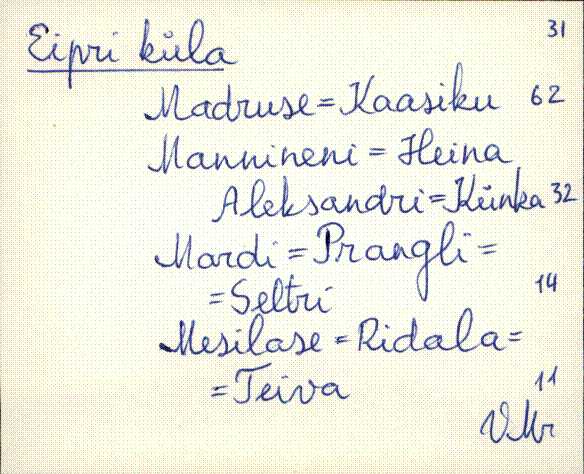 Eipri küla 31
Madruse = Kaasiku 62
Mannineni = Heina
Aleksandri = Künka 32
Mardi = Prangli =
= Seltri 14
Mesilase = Ridala =
= Teiva
11
VMr